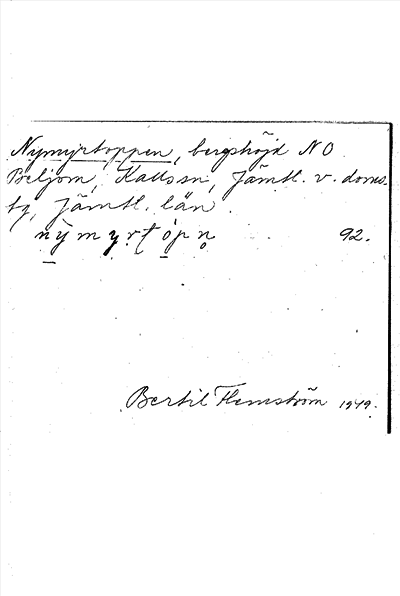 Nymyrtoppen, bergshöjd NO
Böljom, Kalls sn, Jämtl. v. doms.
tg, Jämtl. län.
nỳmyrtȯpn̥ 92.
Bertil Flemström 1949.